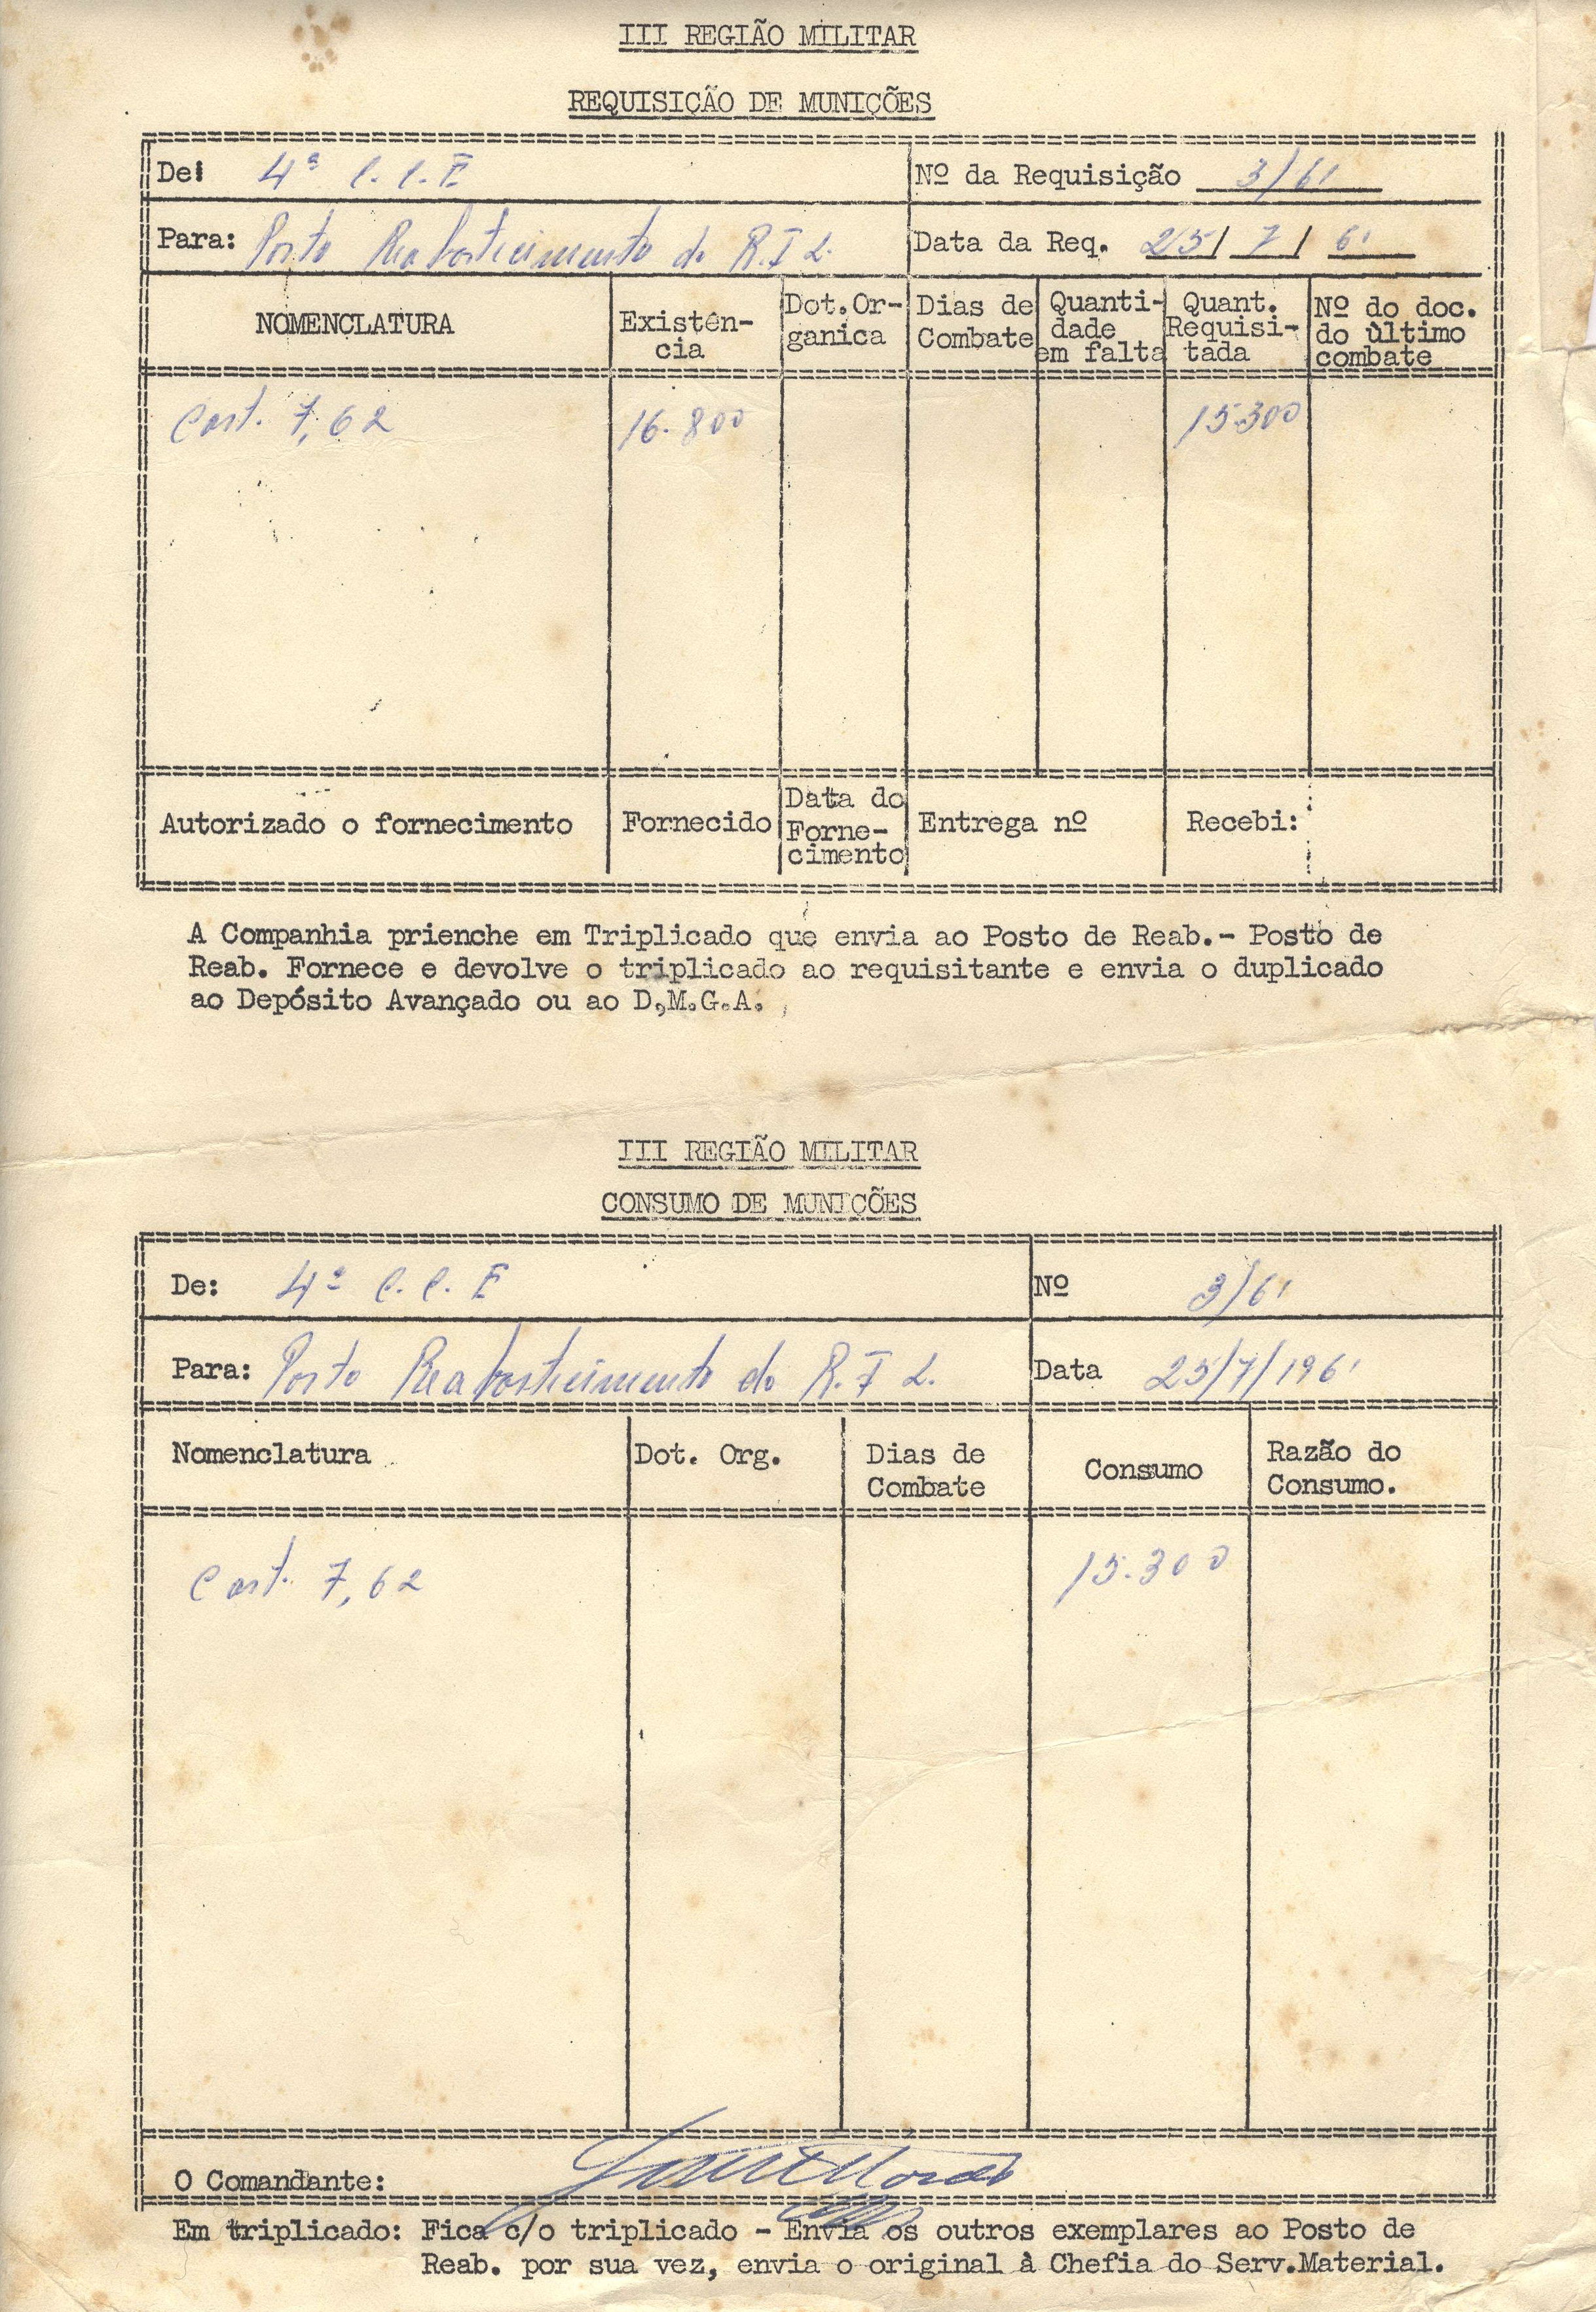 III REGIÃO MILITAR
REQUISIÇÃO DE MUNIÇÕES
De: 4ª C.C.E Nº da Requisição 3/61
Para: Posto Reabastecimento do R.I L. Data da Req. 25/ 7 / 61
NOMENCLATURA Existên-cia Dot.Or-ganica Dias de Combate Quanti-dade em falta Quant. Requisi-tada Nº do doc. do ùltimo combate
Cart. 7,62 16.800 15.300
Autorizado o fornecimento Fornecido Data do Forne-cimento Entrega nº Recebi:
A Companhia prienche em Triplicado que envia ao Posto de Reab.- Posto de
Reab. Fornece e devolve o triplicado ao requisitante e envia o duplicado
ao Depósito Avançado ou ao D,M.G.A.
III REGIÃO MILITAR
CONSUMO DE MUNIÇÕES
De: 4ª C.C.E Nº 3/61
Para: Posto Reabastecimento do R.I L. Data 25/7/1961
Nomenclatura Dot. Org. Dias de Combate Consumo Razão do Consumo.
Cart. 7,62 15.300
O Comandante:
Em triplicado: Fica c/o triplicado - Envia os outros exemplares ao Posto de
Reab. por sua vez, envia o original à Chefia do Serv.Material.